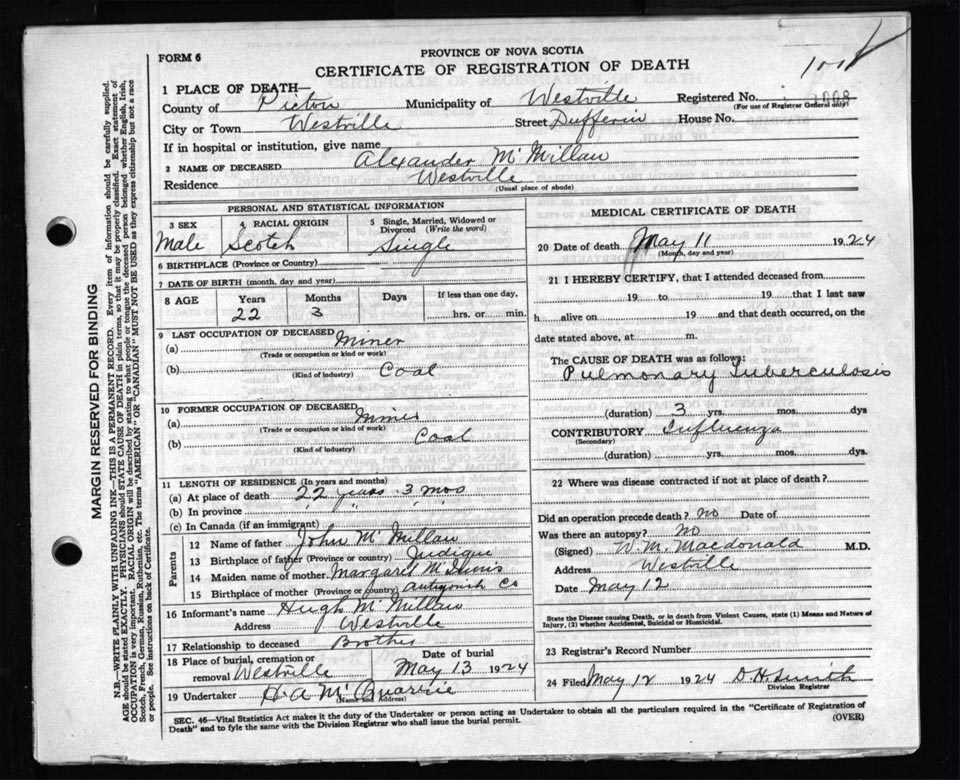 FORM 6
PROVINCE OF NOVA SCOTIA
CERTIFICATE OF REGISTRATION OF DEATH
1008
1 PLACE OF DEATH—
County of Pictou Municipality of Westville Registered No. 1008
(For use of Registrar General only)
City or Town Westville Street Dufferin House No.
If in hospital or institution, give name
2 NAME OF DECEASED Alexander McMillan
Residence Westville
(Usual place of abode)
PERSONAL AND STATISTICAL INFORMATION
3 SEX 4 RACIAL ORIGIN 5 Single, Married, Widowed or Divorced (Write the word)
Male Scotch Single
6 BIRTHPLACE (Province or Country)
7 DATE OF BIRTH (month, day and year)
8 AGE Years Months Days If less than one day,
22 3 hrs. or min.
9 LAST OCCUPATION OF DECEASED
(a) Miner
(Trade or occupation or kind or work)
(b) Coal
(Kind of industry)
10 FORMER OCCUPATION OF DECEASED
(a) Miner
(Trade or occupation or kind or work)
(b) Coal
(Kind of industry)
11 LENGTH OF RESIDENCE (In years and months)
(a) At place of death 22 years 3 mos
(b) In province " " "
(c) In Canada (if an immigrant)
Parents
12 Name of father John McMillan
13 Birthplace of father (Province or country) Judique
14 Maiden name of mother Margaret McInnis
15 Birthplace of mother (Province or country) Antigonish Co
16 Informant's name Hugh McMillan
Address Westville
17 Relationship to deceased Brother
18 Place of burial, cremation or removal Westville
Date of burial May 13 1924
19 Undertaker H A McQuarrie
(Name and Address)
MEDICAL CERTIFICATE OF DEATH
20 Date of death May 11 1924
(Month, day and year)
21 I HEREBY CERTIFY, that I attended deceased from
19 to 19 that I last saw
h alive on 19 and that death occurred, on the
date stated above, at m.
The CAUSE OF DEATH was as follows:
Pulmonary Tuberculosis
(duration) 3 yrs. mos. dys
CONTRIBUTORY Influenza
(Secondary)
(duration) yrs. mos. dys.
22 Where was disease contracted if not at place of death?
Did an operation precede death? No Date of
Was there an autopsy? No
(Signed) W. M. Macdonald M.D.
Address Westville
Date May 12
State the Disease causing Death, or in death from Violent Causes, state (1) Means and Nature of
Injury, (2) whether Accidental, Suicidal or Homicidal.
23 Registrar's Record Number
24 Filed May 12 1924 D. H. Smith
Division Registrar
SEC. 46—Vital Statistics Act makes it the duty of the Undertaker or person acting as Undertaker to obtain all the particulars required in the "Certificate of Registration of
Death" and to fyle the same with the Division Registrar who shall issue the burial permit.
(OVER)
MARGIN RESERVED FOR BINDING
N.B.—WRITE PLAINLY WITH UNFADING INK—THIS IS A PERMANENT RECORD. Every item of information should be carefully supplied.
AGE should be stated EXACTLY. PHYSICIANS should STATE CAUSE OF DEATH in plain terms, so that it may be properly classified. Exact statement of
OCCUPATION is very important. RACIAL ORIGIN will be described by stating to what people or tongue the deceased person belonged whether English, Irish,
Scotch, French, German, Russian, Ruthenian, etc. The terms "AMERICAN" OR "CANADIAN" MUST NOT BE USED as they express citizenship but not a race
or people. See instructions on back of Certificate.